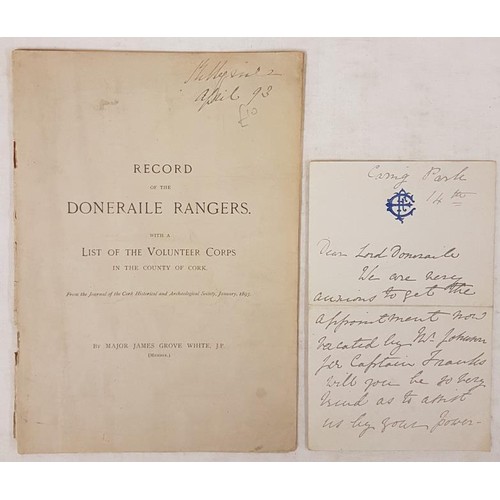 April 93
£10
RECORD
OF THE
DONERAILE RANGERS.
WITH A
LIST OF THE VOLUNTEER CORPS
IN THE COUNTY OF CORK.
From the Journal of the Cork Historical and Archæological Society, January, 1893.
BY MAJOR JAMES GROVE WHITE, J.P.
Carrig Park
14th
Dear Lord Doneraile
We are very
anxious to get the
appointment now
vacated by Mr. Johnson
for Captain Franks
will you be so very
kind as to assist
us by your power-